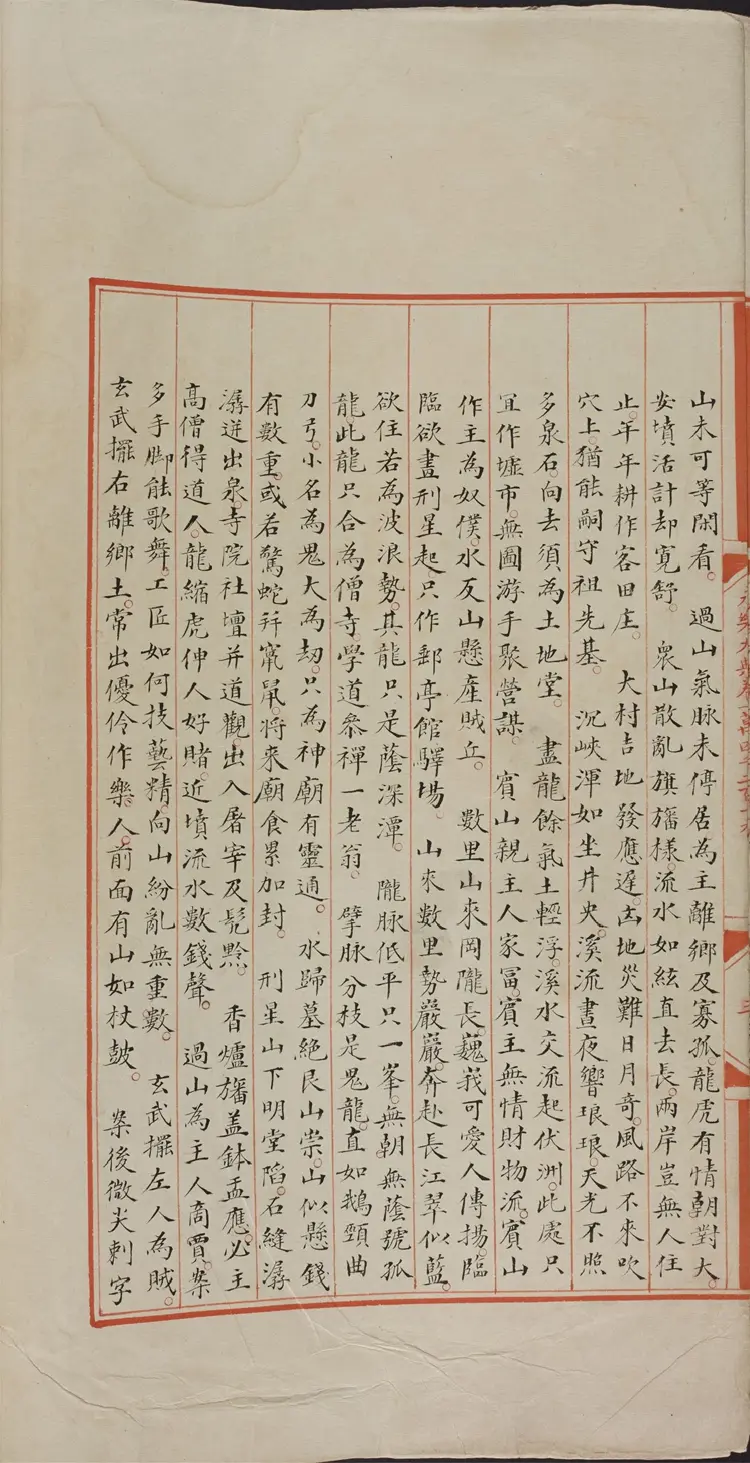 山未可等閑看。 過山氣脉未停居為主離鄉及寡孤。龍虎有情朝對大。
安墳活計却寬舒。 衆山散亂旗旛樣。流水如絃直去長。兩岸豈無人住
止。年年耕作客田庄。 大村吉地發應遲。凶地災難日月奇。風路不來吹
穴上。猶能嗣守祖先基。 沉峽渾如坐井央。溪流晝夜響琅琅。天光不照
多泉石。向去須為土地堂。 盡龍餘氣土輕浮。溪水交流起伏洲。此處只
宜作墟市。無圖游手聚營謀。 賓山親主人家冨。賓主無情財物流。賓山
作主為奴僕。水反山懸產賊丘。 數里山來岡隴長。巍峩可愛人傳揚。臨
臨欲盡刑星起只作郵亭館驛場。 山來數里勢嚴嚴。奔赴長江翠似藍。
欲住若為波浪勢。其龍只是蔭深潭。 隴脉低平只一峯。無朝無蔭號孤
龍此龍只合為僧寺。學道叅禪一老翁。 擘脉分枝是鬼龍。直如鵝頸曲
刀弓。小名為鬼大為刼。只為神廟有靈通。 水歸墓絶艮山崇。山似懸錢
有數重。或若驚蛇并竄鼠。將來廟食累加封。 刑星山下明堂陷。石縫潺
潺迸出泉。寺院社壇并道觀出入屠宰及髠黥。 香爐旛盖鉢盂應。必主
高僧得道人。龍縮虎伸人好賭。近墳流水數錢聲。 過山為主人商賈。案
多手脚能歌舞。工匠如何技藝精。向山紛亂無重數。 玄武擺左人為賊。
玄武擺右離鄉土。常出優伶作樂。人。前面有山如杖皷。 案後微尖刺字